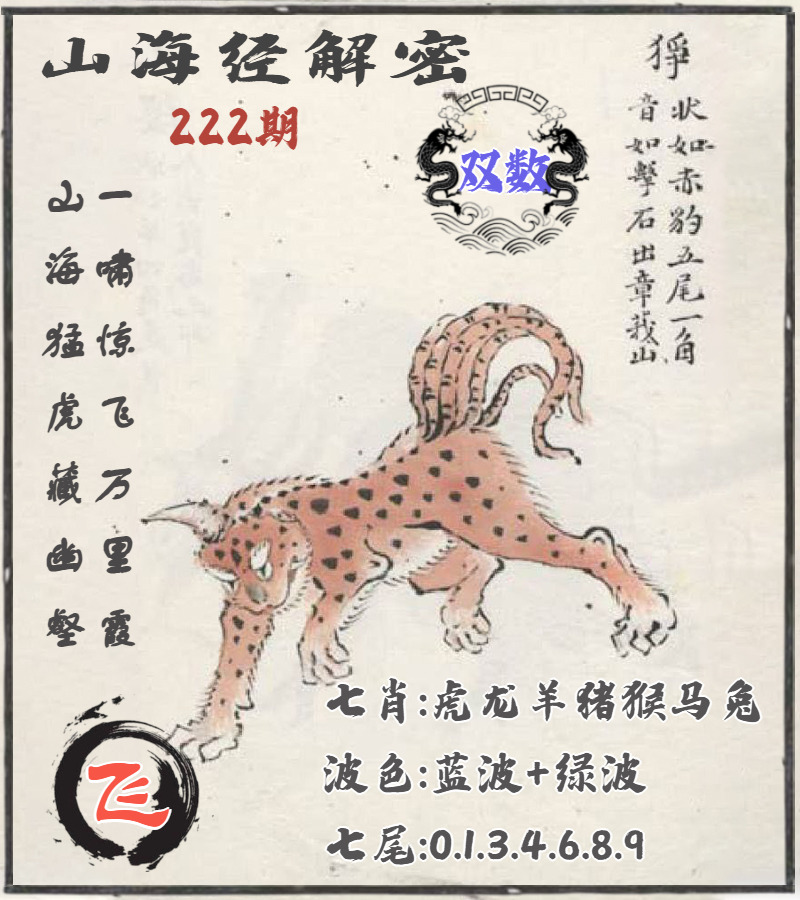 山海经解密
222期
双数
狰
状如赤豹五尾一角
音如擊石出章莪山
山海猛虎藏幽壑
一啸惊飞万里霞
飞
七肖:虎龙羊猪猴马兔
波色:蓝波+绿波
七尾:0.1.3.4.6.8.9